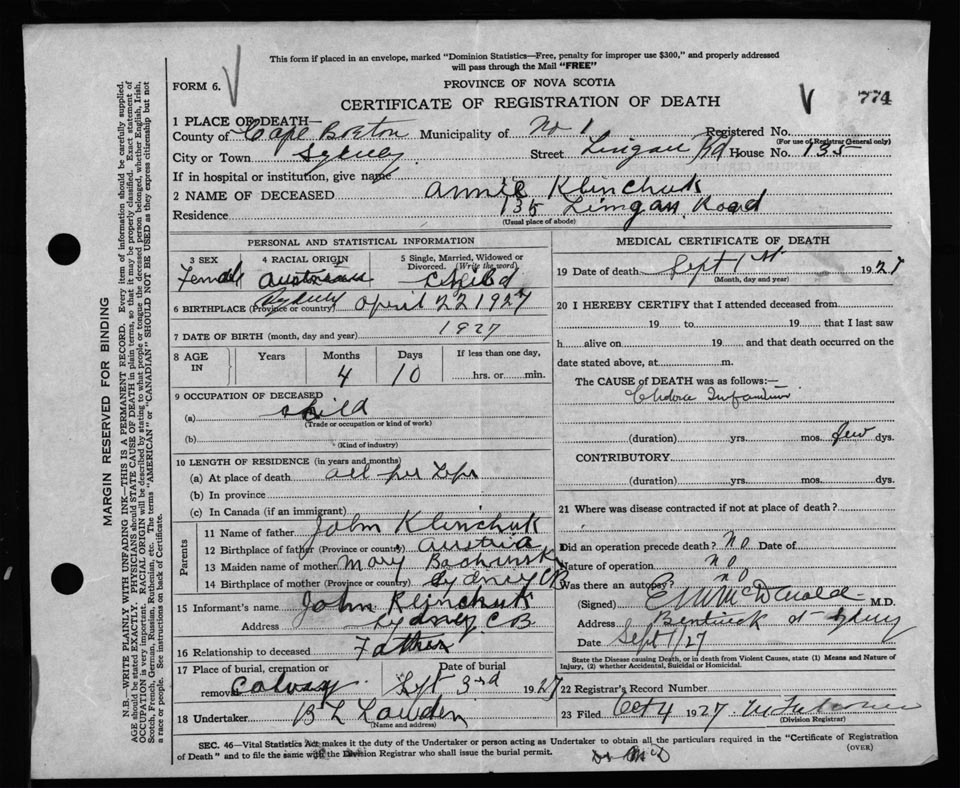 This form if placed in an envelope, marked "Dominion Statistics—Free, penalty for improper use $300," and properly addressed
will pass through the Mail "FREE"
FORM 6. V
PROVINCE OF NOVA SCOTIA
CERTIFICATE OF REGISTRATION OF DEATH
V 774
1 PLACE OF DEATH—
County of Cape Breton Municipality of No 1 Registered No.
(For use of Registrar General only)
City or Town Sydney Street Lingan Rd House No. 135
If in hospital or institution, give name
2 NAME OF DECEASED Annie Klinchuk
Residence 135 Lingan Road
(Usual place of abode)
PERSONAL AND STATISTICAL INFORMATION
3 SEX 4 RACIAL ORIGIN 5 Single, Married, Widowed or Divorced. (Write the word)
Female Austrian Child
6 BIRTHPLACE (Province or country) Sydney April 22 1927
7 DATE OF BIRTH (month, day and year) 1927
8 AGE IN Years Months Days If less than one day,
4 10 hrs. or min.
9 OCCUPATION OF DECEASED
(a) child
(Trade or occupation or kind of work)
(b)
(Kind of industry)
10 LENGTH OF RESIDENCE (in years and months)
(a) At place of death all her Life
(b) In province
(c) In Canada (if an immigrant)
Parents
11 Name of father John Klinchuk
12 Birthplace of father (Province or country) Austria
13 Maiden name of mother Mary
14 Birthplace of mother (Province or country) Sydney CB
15 Informant's name John Klinchuk
Address Sydney C B
16 Relationship to deceased Father
17 Place of burial, cremation or removal Calvary Date of burial Sept 3rd 1927
18 Undertaker B L
(Name and address)
MEDICAL CERTIFICATE OF DEATH
19 Date of death Sept 1st 1927
(Month, day and year)
20 I HEREBY CERTIFY that I attended deceased from
19 to 19 that I last saw
h alive on 19 and that death occurred on the
date stated above, at m.
The CAUSE of DEATH was as follows:—
Infantum
(duration) yrs. mos. few dys.
CONTRIBUTORY
(duration) yrs. mos. dys.
21 Where was disease contracted if not at place of death?
Did an operation precede death? no Date of
Nature of operation no
Was there an autopsy? no
(Signed) McDonald M.D.
Address Bentinck St Sydney
Date Sept 1/27
State the Disease causing Death, or in death from Violent Causes, state (1) Means and Nature of
Injury, (2) whether Accidental, Suicidal or Homicidal.
22 Registrar's Record Number
23 Filed Oct 4 1927
(Division Registrar)
SEC. 46—Vital Statistics Act makes it the duty of the Undertaker or person acting as Undertaker to obtain all the particulars required in the "Certificate of Registration
of Death" and to file the same with the Division Registrar who shall issue the burial permit.
(OVER)
Dr McD
MARGIN RESERVED FOR BINDING
N.B.—WRITE PLAINLY WITH UNFADING INK—THIS IS A PERMANENT RECORD. Every item of information should be carefully supplied.
AGE should be stated EXACTLY. PHYSICIANS should STATE CAUSE OF DEATH in plain terms, so that it may be properly classified. Exact statement of
OCCUPATION is very important. RACIAL ORIGIN will be described by stating to what people or tongue the deceased person belonged, whether English, Irish,
Scotch, French, German, Russian, Ruthenian, etc. The terms "AMERICAN" or "CANADIAN" SHOULD NOT BE USED as they express citizenship but not
a race or people. See instructions on back of Certificate.